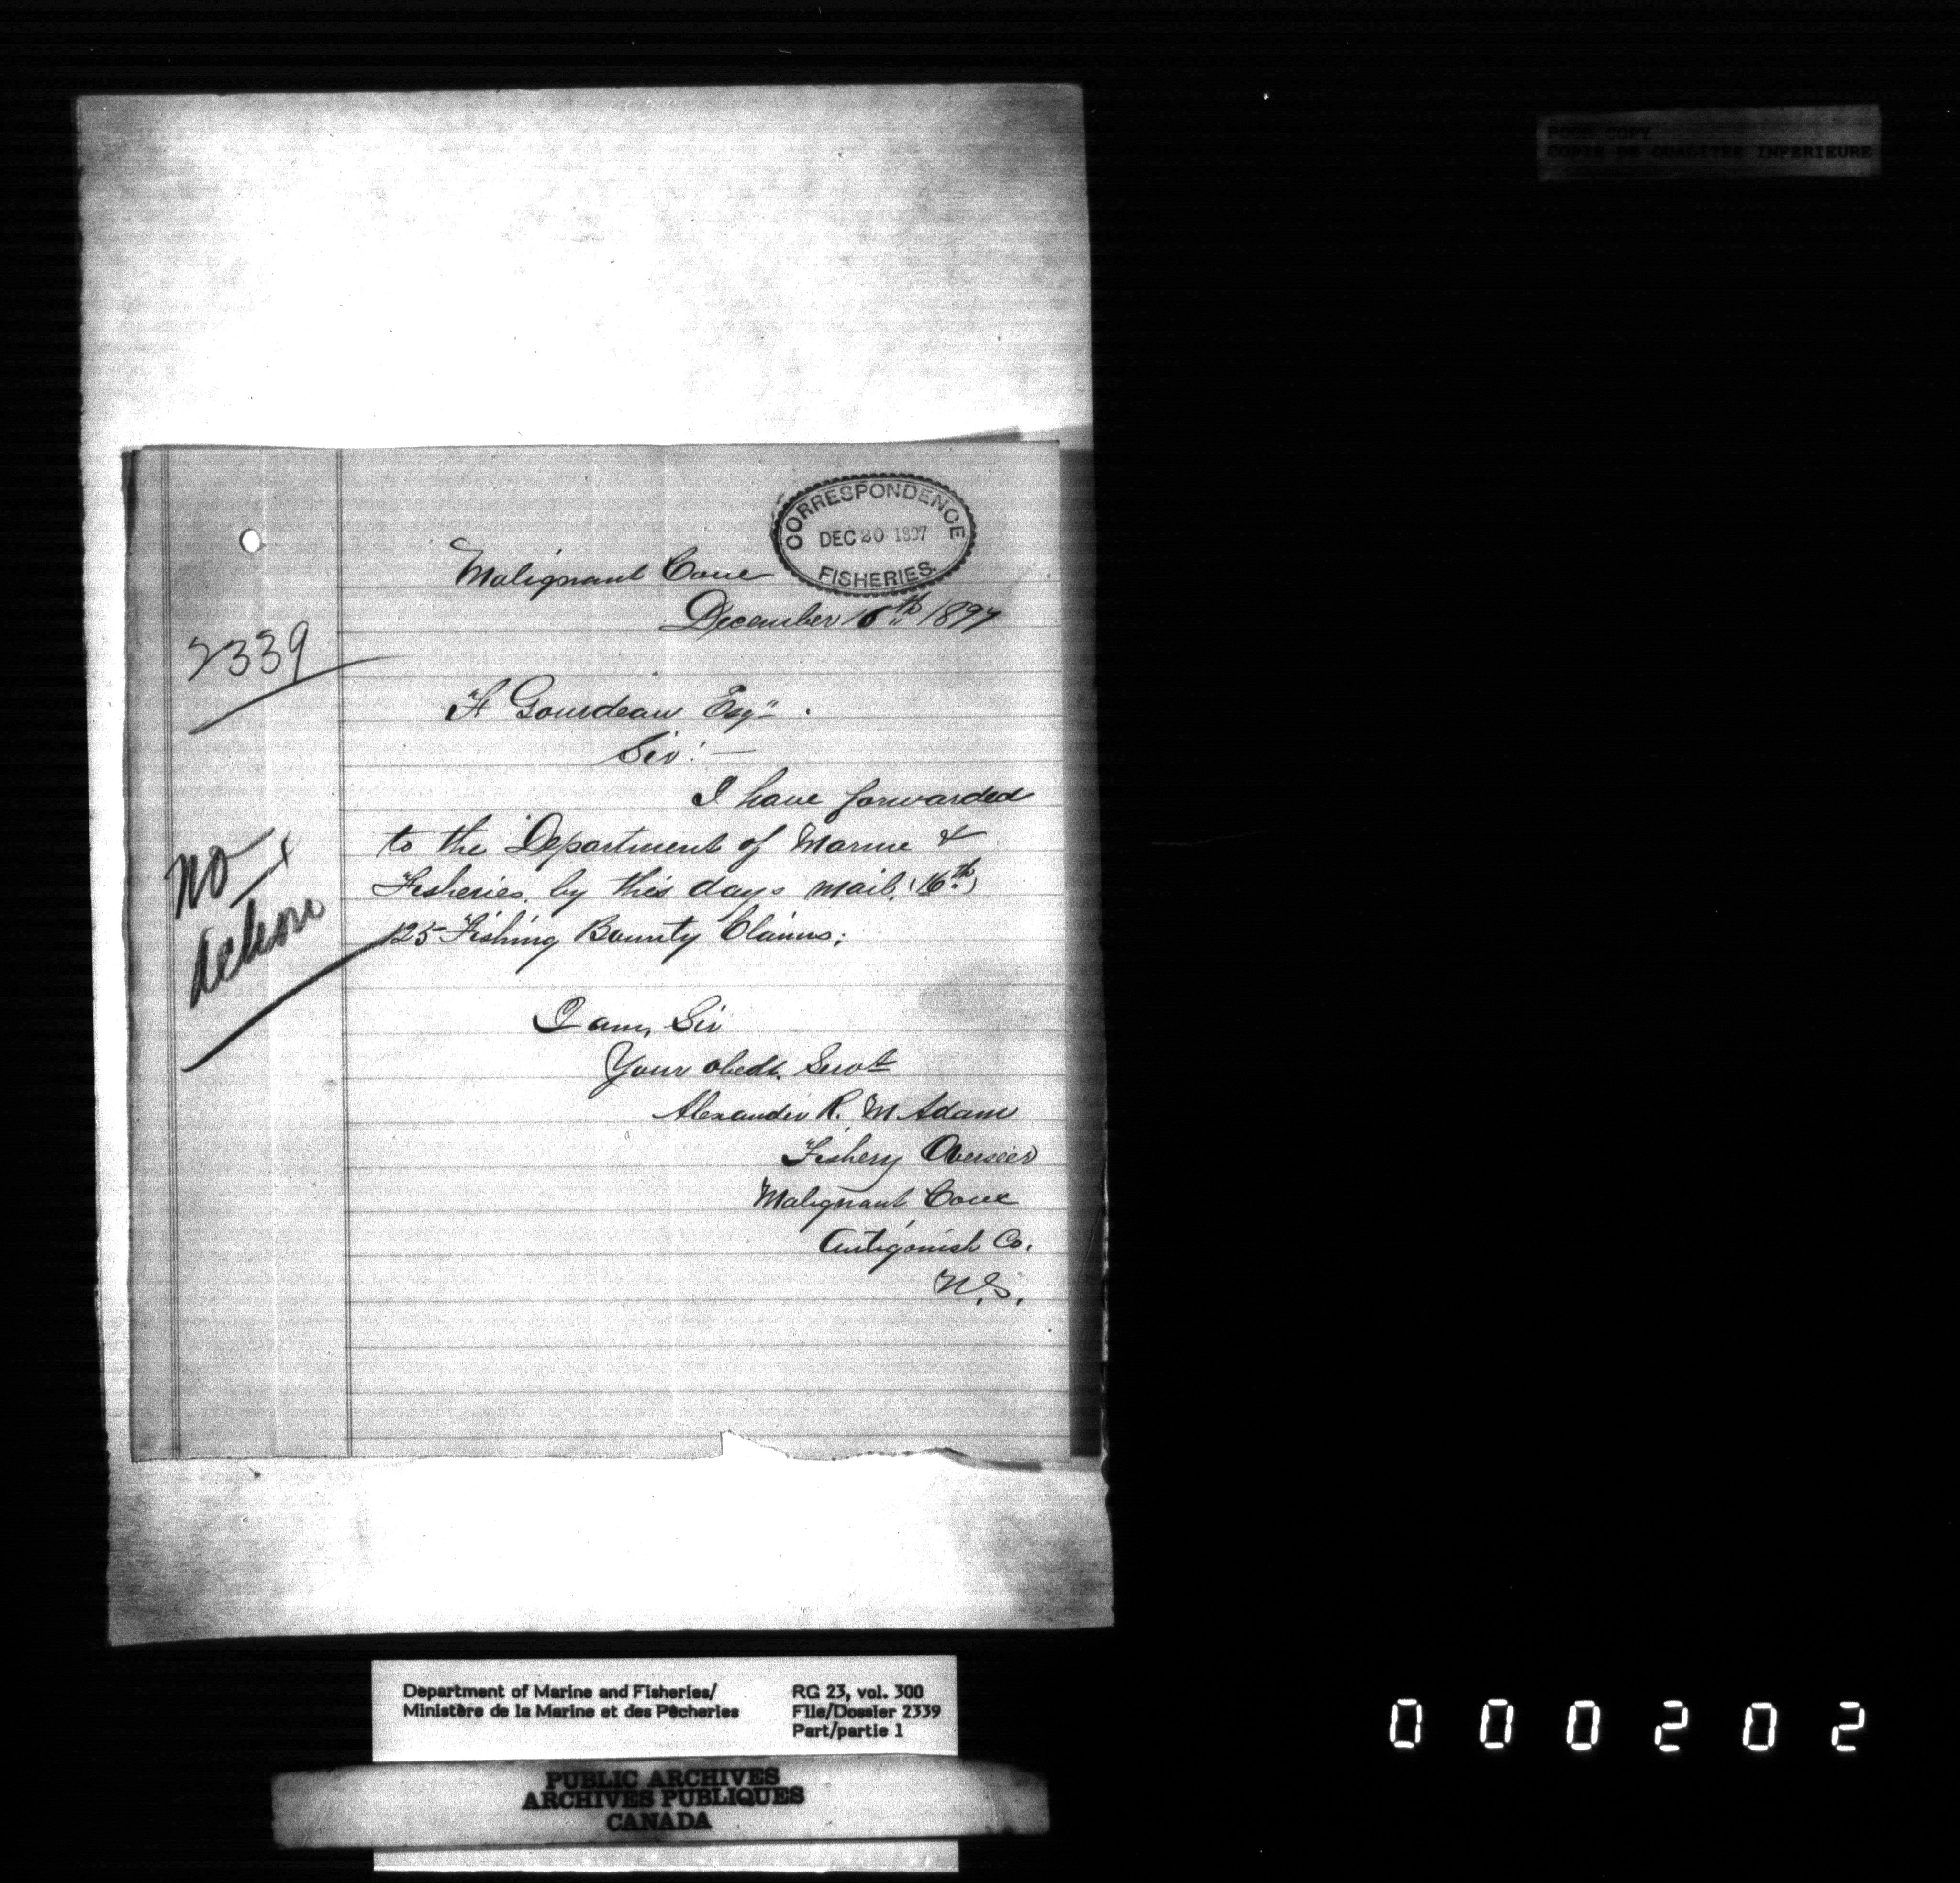 POOR COPY
COPIE DE QUALITEE INFERIEURE
CORRESPONDENCE
DEC 20 1897
FISHERIES.
Malignant Cove
December 16th 1897
2339
F Gourdeau Esqr.
Sir:—
I have forwarded
to the Department of Marine &
Fisheries, by this days mail, (16th)
125 Fishing Bounty Claims;
No
Action
I am, Sir
Your obedt. Servt
Alexander R. McAdam
Fishery Overseer
Malignant Cove
Antigonish Co.
N.S.
Department of Marine and Fisheries/
Ministère de la Marine et des Pêcheries
RG 23, vol. 300
File/Dossier 2339
Part/partie 1
PUBLIC ARCHIVES
ARCHIVES PUBLIQUES
CANADA
000202